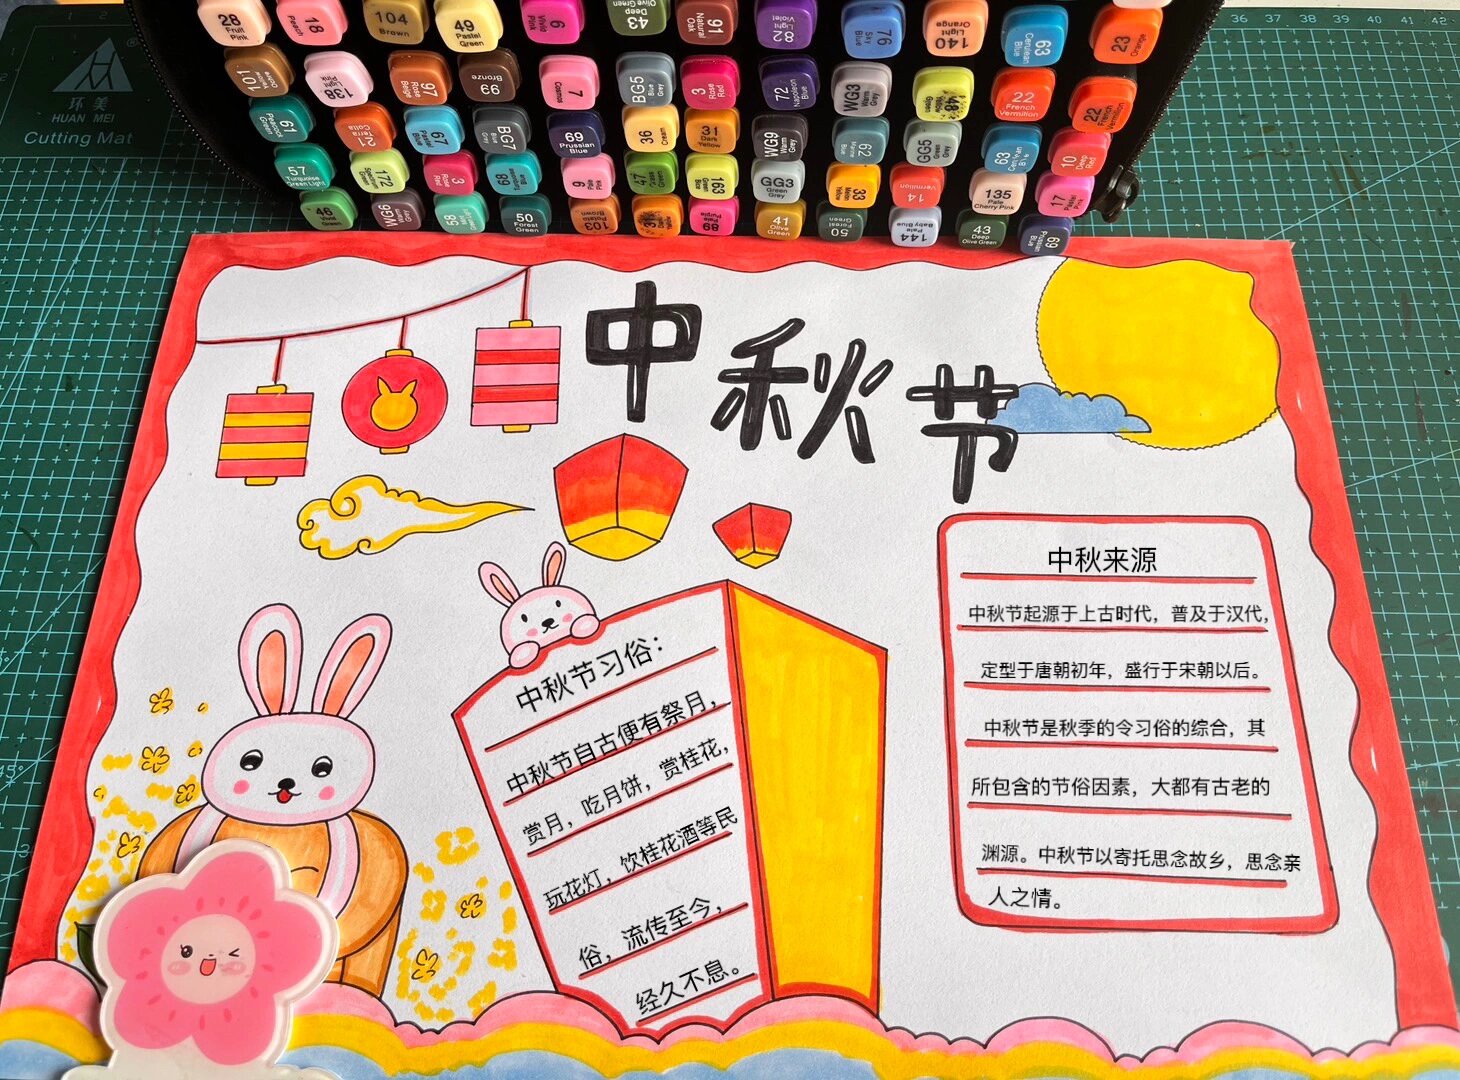 28 Fruit Pink
18 Peach
104 Brown
49 Pastel Green
6 Vivid Pink
43 Deep Olive Green
91 Natural Oak
82 Light Violet
76 Sky Blue
140 Light Orange
63 Cerulean Blue
23 Orange
101
138 Light Pink
97 Rose Beige
99 Bronze
7 Cosmos
BG5 Blue Grey
3 Rose Red
72 Napoleon Blue
WG3 Warm Grey
48
22 French Vermilion
22 French Vermilion
61 Peacock Green
21 Terra Cotta
67 Pastel Blue
BG7
69 Prussian Blue
36 Cream
31 Dark Yellow
WG9 Warm Grey
62
GG5 Green Grey
63 Cerulean Blue
10 Deep Red
57 Turquoise Green Light
172
3 Rose Red
68 Turquoise Blue
9 Pale Pink
47 Grass Green
163
GG3 Green Grey
33 Melon Yellow
14 Vermilion
135 Pale Cherry Pink
17 Pastel Pink
46 Vivid Green
WG6 Warm Grey
58
50 Forest Green
103 Potato Brown
31 Dark Yellow
89 Pale Purple
41 Olive Green
50 Forest Green
144 Pale Baby Blue
43 Deep Olive Green
69 Prussian Blue
36 37 38 39 40 41 42
环美®
HUAN MEI
Cutting Mat
45°
中秋节
中秋节习俗:
中秋节自古便有祭月,
赏月,吃月饼,赏桂花,
玩花灯,饮桂花酒等民
俗,流传至今,
经久不息。
中秋来源
中秋节起源于上古时代,普及于汉代,
定型于唐朝初年,盛行于宋朝以后。
中秋节是秋季的令习俗的综合,其
所包含的节俗因素,大都有古老的
渊源。中秋节以寄托思念故乡,思念亲
人之情。